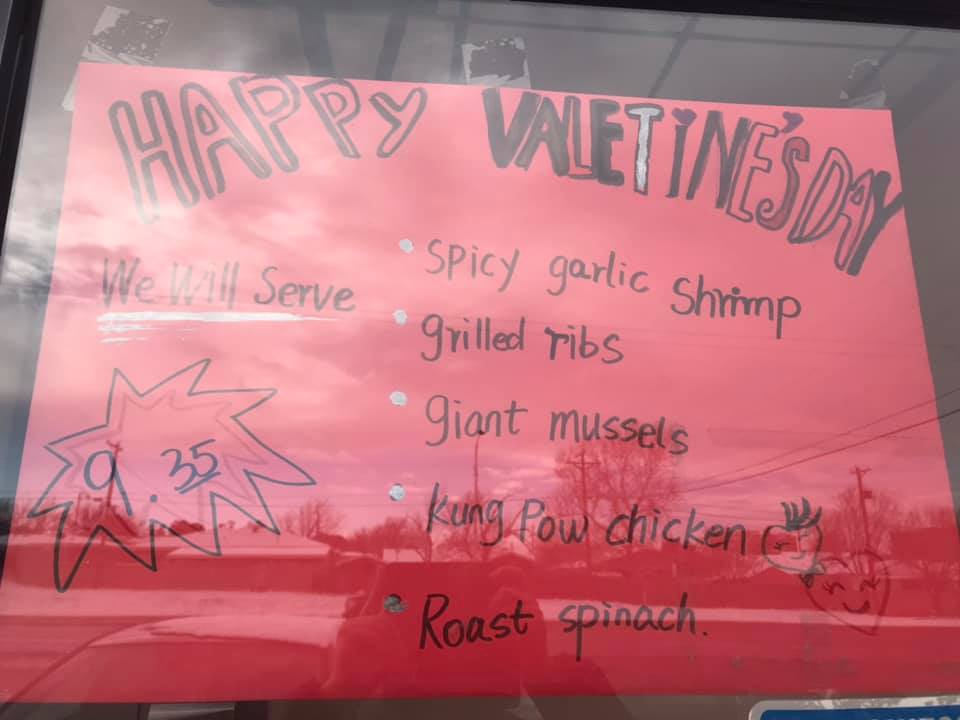 HAPPY VALETINE'S DAY
We Will Serve
9.35
• Spicy garlic Shrimp
• grilled ribs
• giant mussels
• Kung Pow chicken
• Roast spinach.